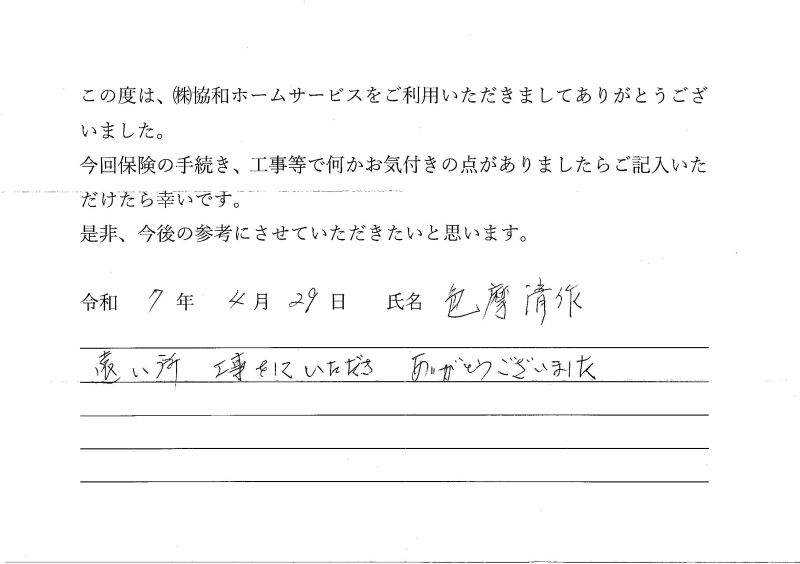 この度は、㈱協和ホームサービスをご利用いただきましてありがとうござ
いました。
今回保険の手続き、工事等で何かお気付きの点がありましたらご記入いた
だけたら幸いです。
是非、今後の参考にさせていただきたいと思います。
令和 7 年 4 月 29 日 氏名 摩 清作
遠い所 工事をして いただき ありがとうございました